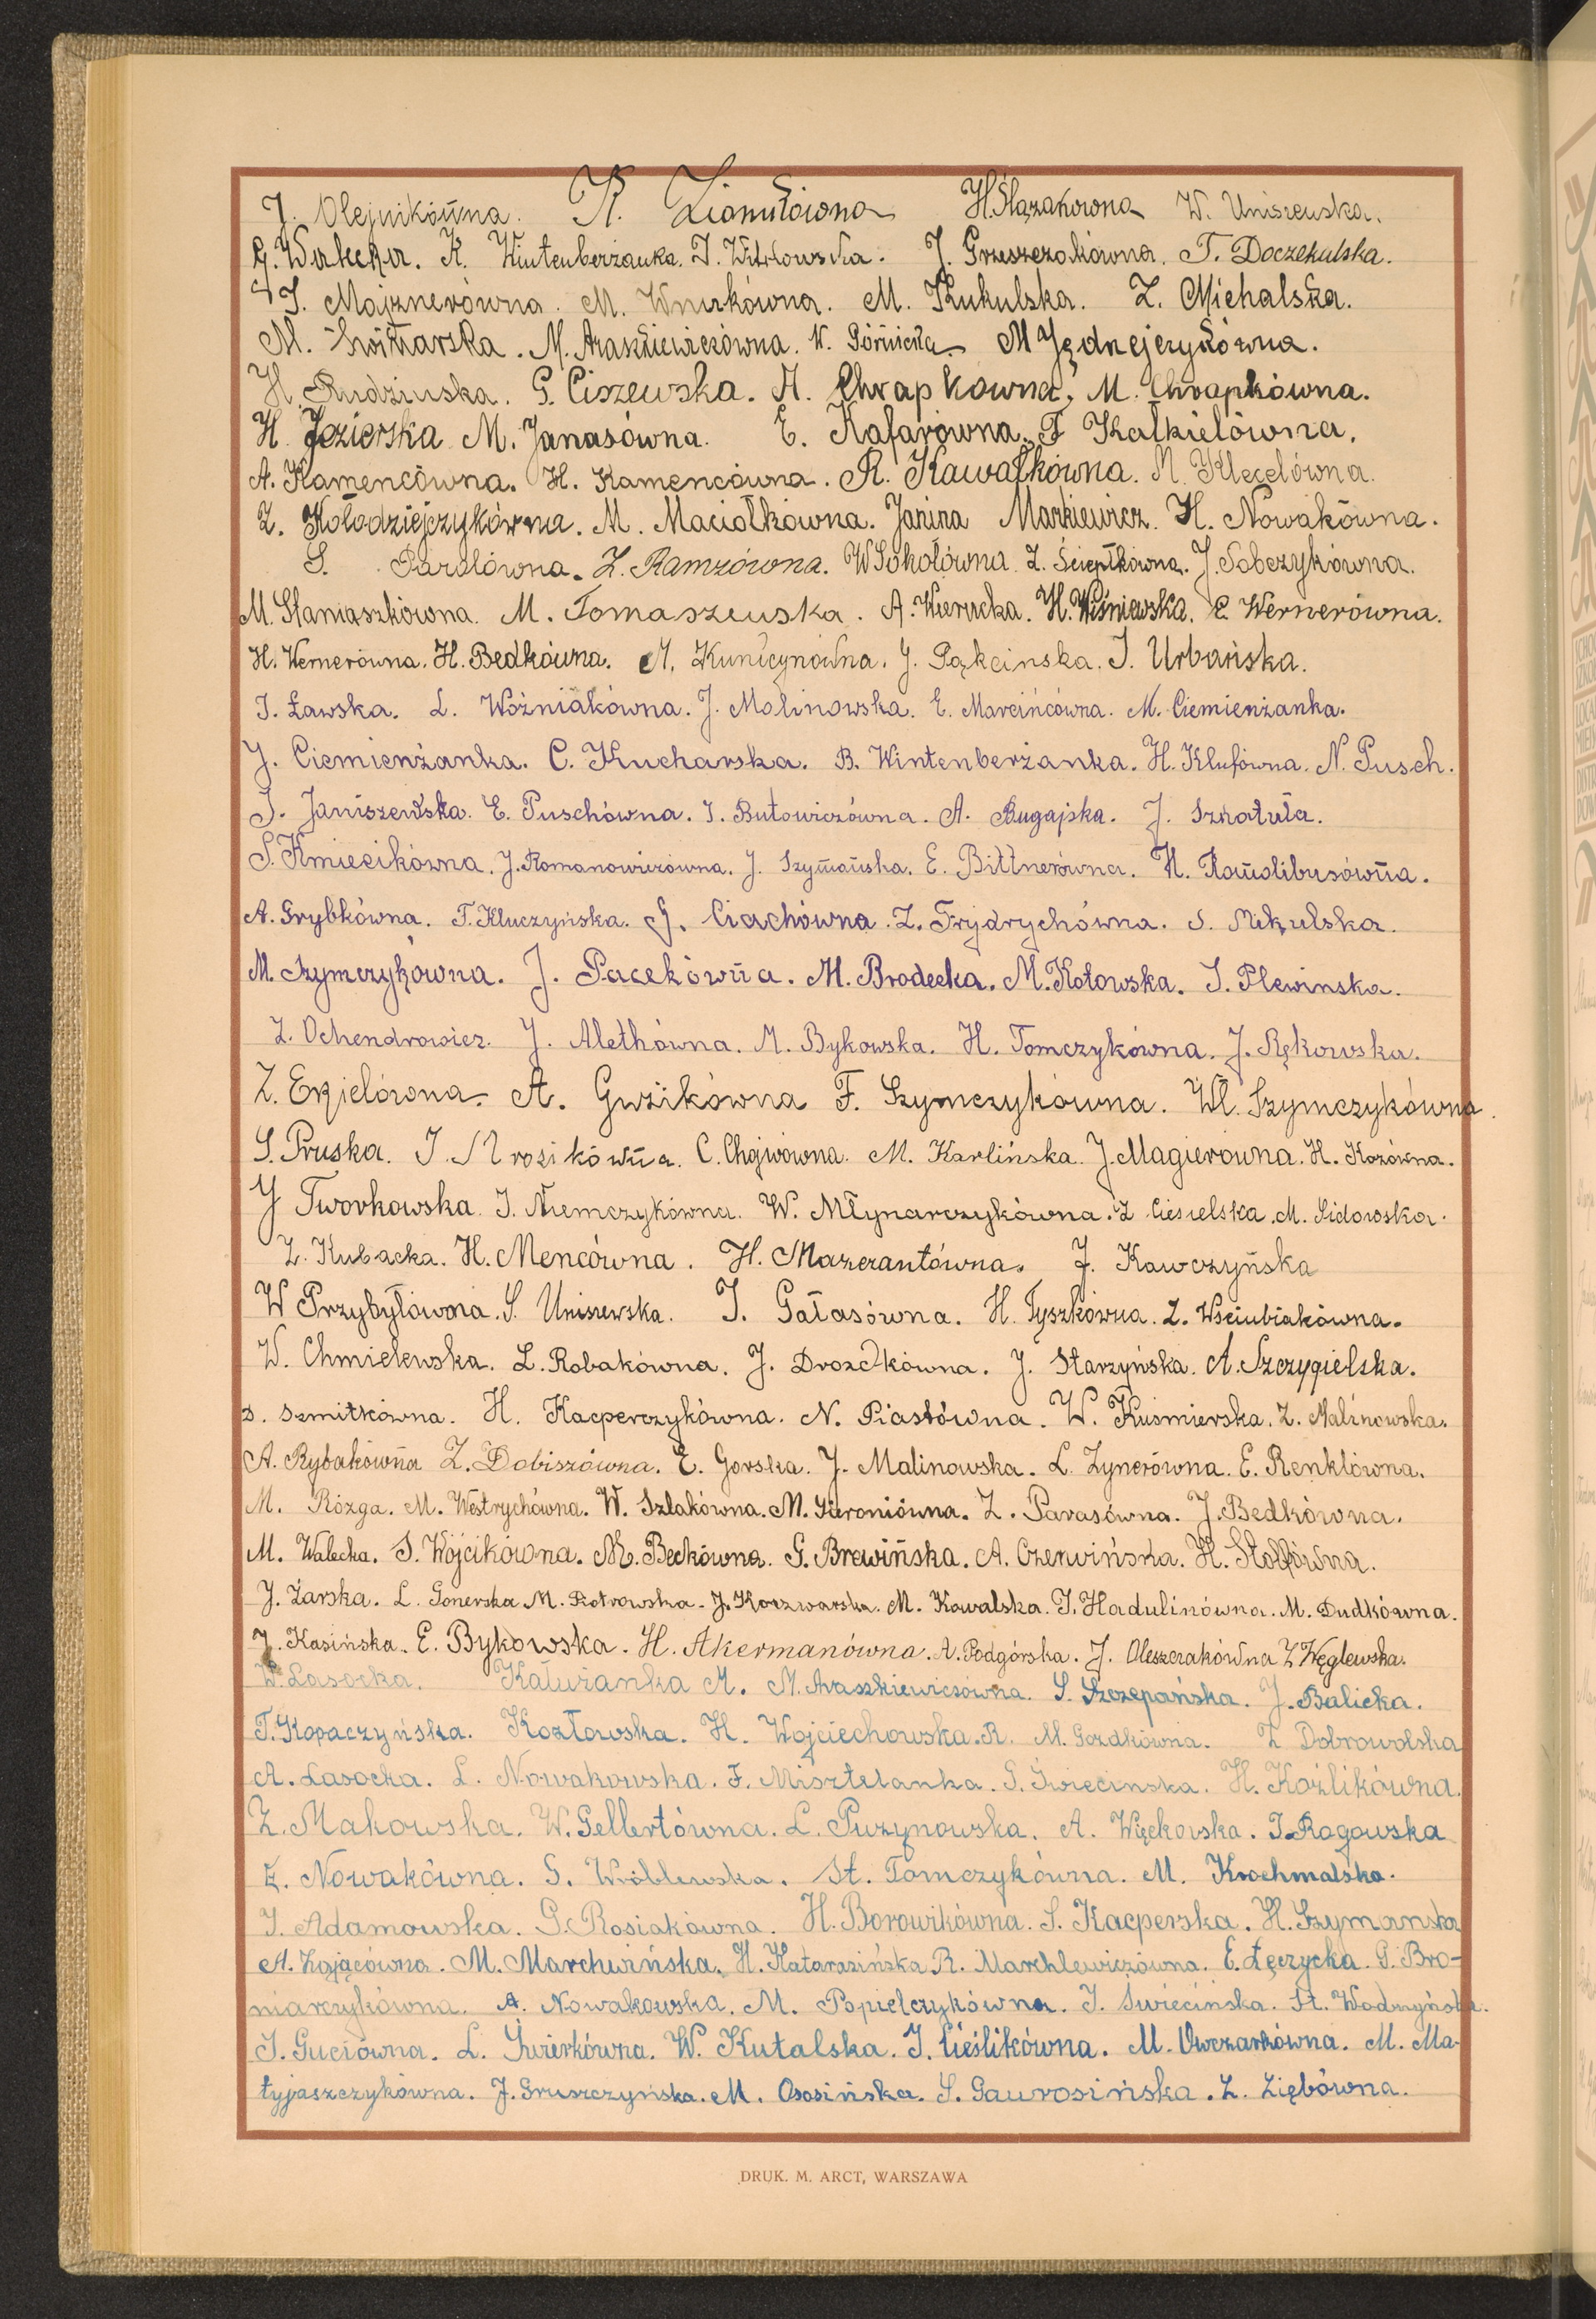 J. Olejnikówna. K. Ziomułówna H. Ślązakówna W. Uniszewska.
K. Wintenberżanka. J. Witkowska. J. Grzeszczakówna. T. Doczekalska.
J. Majznerówna. M. Wnukówna. M. Kukulska. Z. Michalska.
M. Świtarska. M. Araszkiewiczówna. W. Górnicka. M Jędrzejczykówna.
H. Rudzińska. G. Ciszewska. A. Chrapkówna, M. Chrapkówna.
H. Jezierska M. Janasówna. E. Kafarówna. F Kałkielówna.
A. Kamencówna. H. Kamencówna. R. Kawałkówna. M. Klęcelówna.
Z. Kołodziejczykówna. M. Maciołkówna. Janina Markiewicz. H. Nowakówna.
S. Parolówna. Z. Ramzówna. W Sokołówna. Z. Ściepłkówna. J. Sobczykówna.
M. Staniaszkówna. M. Tomaszewska. A. Wierucka. H. Wiśniewska. E. Wernerówna.
H. Wernerówna. H. Bedkówna. M. Kunicynówna. J. Pąkcinska. J. Urbańska.
J. Ławska. L. Woźniakówna. J. Malinowska. E. Marcińcówna. M. Ciemienżanka.
J. Ciemienżanka. C. Kucharska. B. Wintenberżanka. H. Klufówna. N. Pusch.
J. Janiszewska. E. Puschówna. J. Butowiczówna. A. Bugajska. J. Szkatuła.
S. Kmiecikówna. J. Romanowiczówna. J. Szymańska. E. Bittnerówna. H. Kawalibusówna.
A. Grybkówna. T. Kluczyńska. J. Ciachówna. Z. Frydrychówna. S. Mikulska.
M. Szymczykówna. J. Pacekówna. M. Brodecka. M. Kotowska. J. Plewinska.
Z. Ochendrowicz. J. Alethówna. M. Bykowska. H. Tomczykówna. J. Rękowska.
Z. Erzielówna. A. Gwzikówna F. Szymczykówna. Wł. Szymczykówna.
S. Pruska. J. Mrozikówna. C. Chojwówna. M. Karlińska. J. Magierówna. H. Kozówna.
J Tworkowska. J. Niemczykówna. W. Młynarczykówna. Z Ciesielska. M. Sidowska.
Z. Kubacka. H. Mencówna. H. Mazerantówna. J. Kawczyńska
W Przybyłówna. S. Uniszewska. J. Gałasówna. H. Tyszkówna. Z. Wściubiakówna.
W. Chmielewska. L. Robakówna. J. Drozdkówna. J. Starzyńska. A. Szczygielska.
S. Szmitkówna. H. Kacperczykówna. N. Piastówna. W. Kuśmierska. Z. Malinowska.
A. Rybakówna Z. Dobiszówna. E. Gorska. J. Malinowska. L. Zynerówna. E. Renklówna.
M. Rózga. M. Westrychówna. W. Szlakówna. M. Gieroniówna. Z. Parasówna. J. Bedkówna.
M. Walecka. S. Wójcikówna. M. Beckówna. G. Brewińska. A. Czerwińska. H. Stolfówna.
J. Żarska. L. Gonerska M. Piotrowska. J. Korzwarska. M. Kowalska. J. Hadulinówna. M. Dudkówna.
J. Kasińska. E. Bykowska. H. Akermanówna. A. Podgórska. J. Oleszczakówna Z Węglewska.
W. Lasocka. Kałużanka M. M. Araszkiewiczówna. S. Szczepańska. J. Balicka.
T. Kopaczyńska. Kozłowska. H. Wojciechowska. R. M. Gozdkówna. Z Dobrowolska
A. Lasocka. L. Nowakowska. F. Misztelanka. S. Świecinska. H. Koźlikówna.
Z. Makowska. W. Gellertówna. L. Puzynowska. A. Więckowska. J. Rogowska
Z. Nowakówna. S. Wróblewska. St. Tomczykówna. M. Krochmalska.
J. Adamowska. G. Rosiakówna. H. Borowikówna. S. Kacperska. H. Szymanska
A. Zającówna. M. Marchwińska. H. Katarzińska R. Marchlewiczówna. E. Łęczycka. G. Bro-
niarczykówna. A. Nowakowska. M. Popielczykówna. J. Świecińska. St. Wodzyńska.
J. Guciówna. L. Świerkówna. W. Kutalska. J. Cieślikówna. M. Owczarkówna. M. Ma-
tyjaszczykówna. J. Gruszczyńska. M. Ososińska. S. Gawrosińska. Z. Ziębówna.
DRUK. M. ARCT, WARSZAWA